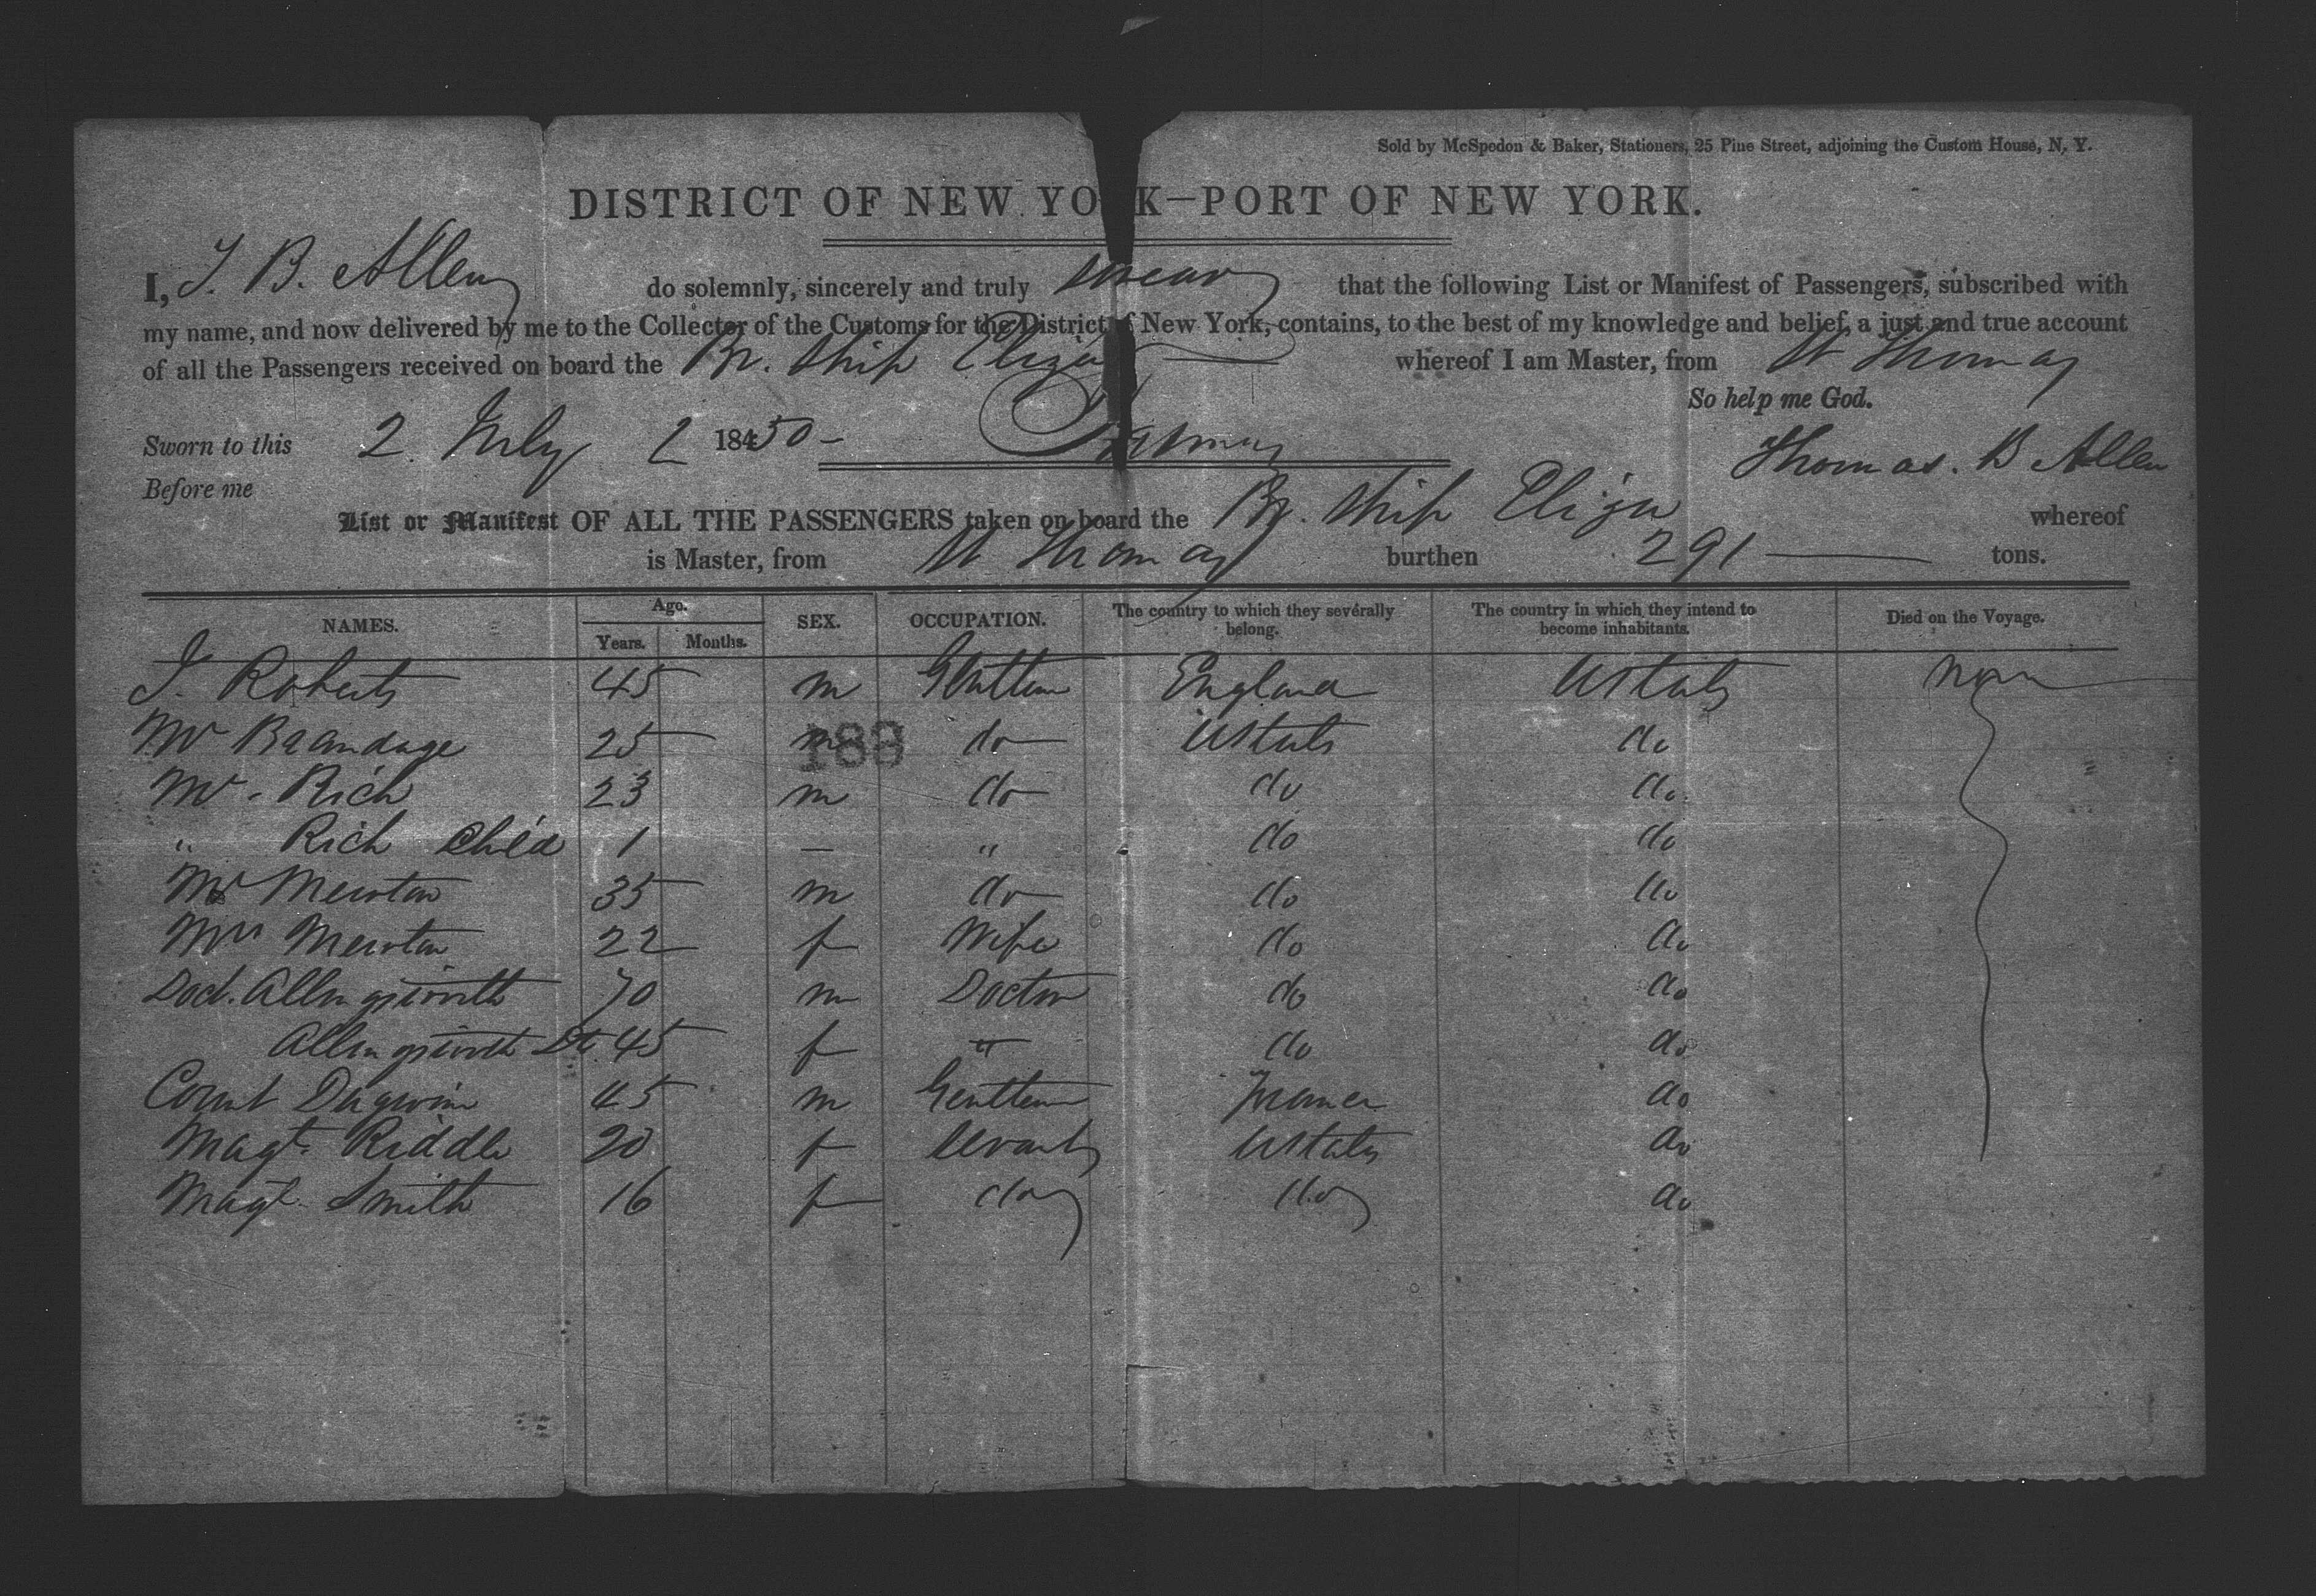 Sold by McSpedon & Baker, Stationers, 25 Pine Street, adjoining the Custom House, N. Y.
DISTRICT OF NEW YO K—PORT OF NEW YORK.
I, T. B. Allen do solemnly, sincerely and truly swear that the following List or Manifest of Passengers, subscribed with
my name, and now delivered by me to the Collector of the Customs for the District of New York, contains, to the best of my knowledge and belief, a just and true account
of all the Passengers received on board the Br. Ship Eliza whereof I am Master, from St Thomas
So help me God.
Sworn to this 2 July 2 18450
Thomas. B Allen
Before me
List or Manifest OF ALL THE PASSENGERS taken on board the Br. Ship Eliza whereof
is Master, from St Thomas burthen 291 tons.
NAMES. Age. Years. Months. SEX. OCCUPATION. The country to which they severally belong. The country in which they intend to become inhabitants. Died on the Voyage.
J. Roberts 45 m England UStates Non
Mr Brandage 25 m do UStates do
188
Mr. Rich 23 m do do do
" Rich Child 1 — " do do
Mr Merston 35 m do do do
Mrs Merston 22 f Wife do do
Doct. 70 m Doctor do do
45 f " do do
Count 45 m Gentlem France do
Magt. Riddle 20 f UStates do
Magt. Smith 16 f do do do